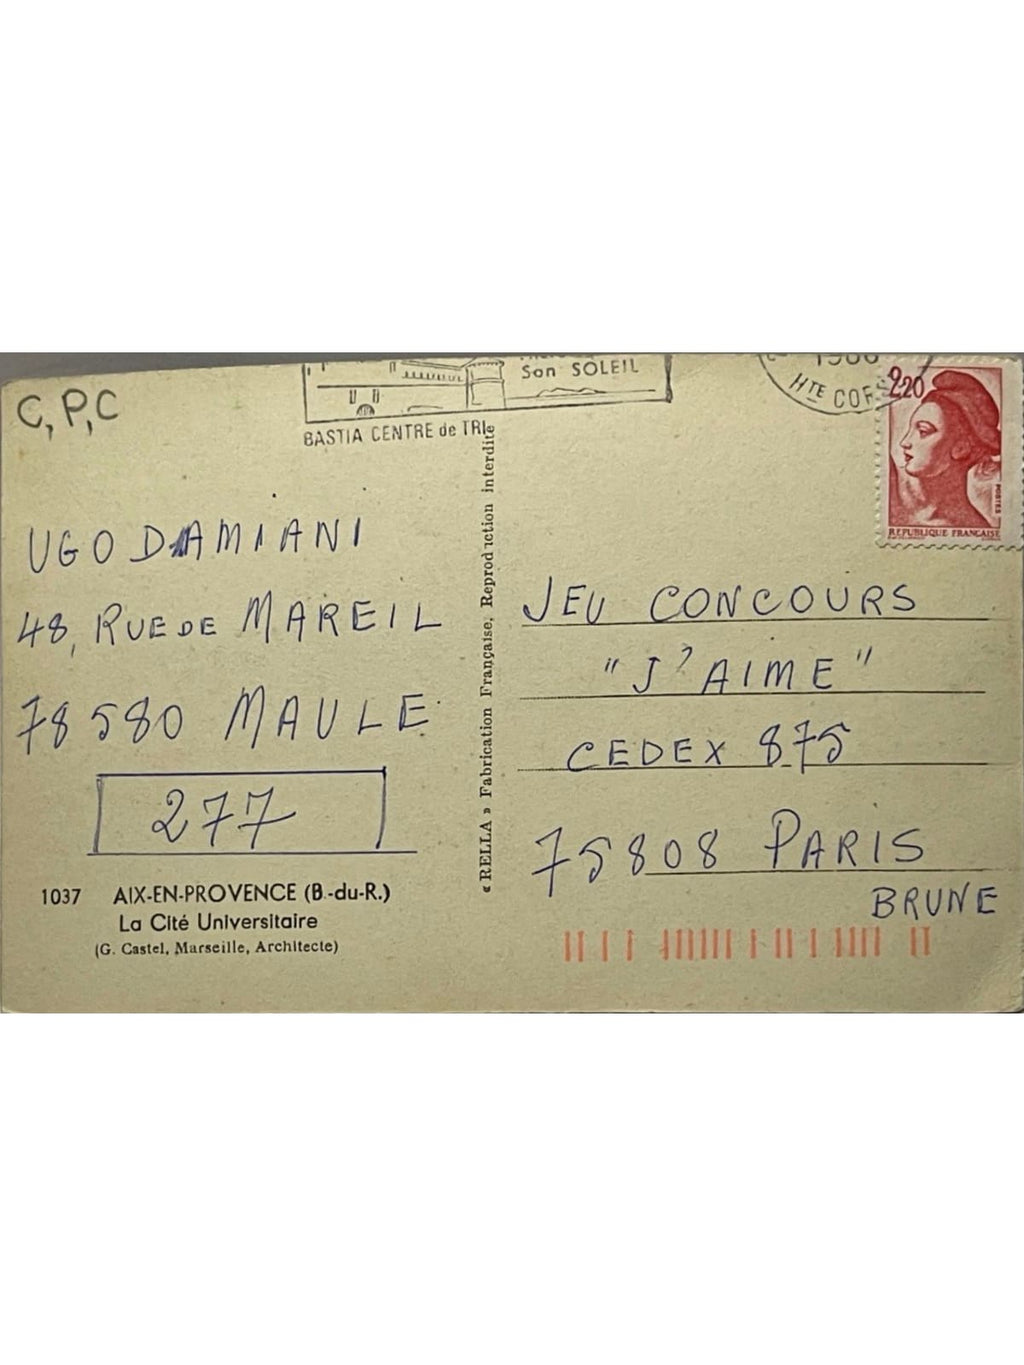 Son SOLEIL
BASTIA CENTRE de TRI
HTE COR
2,20
POSTES
REPUBLIQUE FRANÇAISE
C,P,C
UGO DAMIANI
48, RUE DE MAREIL
78580 MAULE
277
1037 AIX-EN-PROVENCE (B.-du-R.)
La Cité Universitaire
(G. Castel, Marseille, Architecte)
« RELLA » Fabrication Française, Reproduction interdite
JEU CONCOURS
"J'AIME"
CEDEX 875
75808 PARIS
BRUNE